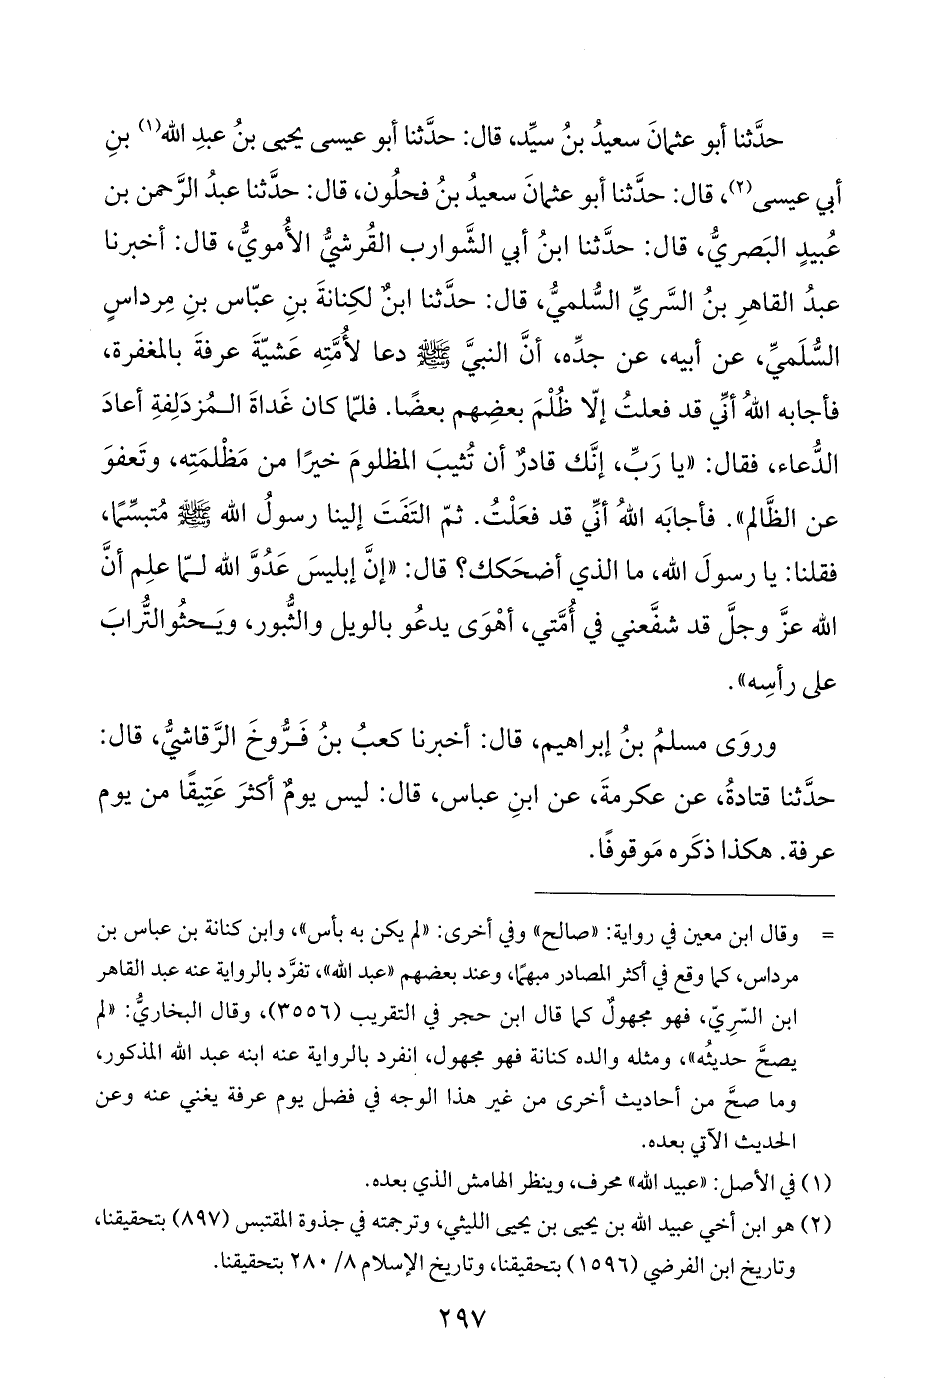 حدَّثنا أبو عثمانَ سعيدُ بنُ سيِّد، قال: حدَّثنا أبو عيسى يحيى بنُ عبدِ الله(١) بنِ
أبي عيسى(٢)، قال: حدَّثنا أبو عثمانَ سعيدُ بنُ فحلُون، قال: حدَّثنا عبدُ الرَّحمن بن
عُبيدٍ البَصريُّ، قال: حدَّثنا ابنُ أبي الشَّوارب القُرشيُّ الأُمويُّ، قال: أخبرنا
عبدُ القاهرِ بنُ السَّريِّ السُّلميُّ، قال: حدَّثنا ابنٌ لكِنانةَ بنِ عبّاس بنِ مِرداسٍ
السُّلَميِّ، عن أبيه، عن جدِّه، أنَّ النبيَّ ﷺ دعا لأُمَّتِه عَشيّةَ عرفةَ بالمغفرة،
فأجابه اللهُ أنِّي قد فعلتُ إلّا ظُلْمَ بعضِهم بعضًا. فلمّا كان غَداةَ الـمُزدَلِفةِ أعادَ
الدُّعاء، فقال: «يا رَبِّ، إنَّك قادرٌ أن تُثيبَ المظلومَ خيرًا من مَظْلمَتِه، وتَعفوَ
عن الظَّالم». فأجابَه اللهُ أنِّي قد فعَلْتُ. ثمّ التَفَتَ إلينا رسولُ الله ﷺ مُتبسِّمًا،
فقلنا: يا رسولَ الله، ما الذي أضحَكك؟ قال: «إنَّ إبليسَ عَدُوَّ الله لـمّا علِم أنَّ
الله عزَّ وجلَّ قد شفَّعني في أُمَّتي، أهْوَى يدعُو بالويل والثُّبور، ويَـحثُو التُّرابَ
على رأسِه».
وروَى مسلمُ بنُ إبراهيم، قال: أخبرنا كعبُ بنُ فَـرُّوخَ الرَّقاشيُّ، قال:
حدَّثنا قتادةُ، عن عكرمةَ، عن ابنِ عباس، قال: ليس يومٌ أكثرَ عَتِيقًا من يوم
عرفة. هكذا ذكَره مَوقوفًا.
= وقال ابن معين في رواية: «صالح» وفي أخرى: «لم يكن به بأس»، وابن كنانة بن عباس بن
مرداس، كما وقع في أكثر المصادر مبهمًا، وعند بعضهم «عبد الله»، تفرَّد بالرواية عنه عبد القاهر
ابن السّرِيّ، فهو مجهولٌ كما قال ابن حجر في التقريب (٣٥٥٦)، وقال البخاريُّ: «لم
يصحَّ حديثُه»، ومثله والده كنانة فهو مجهول، انفرد بالرواية عنه ابنه عبد الله المذكور،
وما صحَّ من أحاديث أخرى من غير هذا الوجه في فضل يوم عرفة يغني عنه وعن
الحديث الآتي بعده.
(١) في الأصل: «عبيد الله» محرف، وينظر الهامش الذي بعده.
(٢) هو ابن أخي عبيد الله بن يحيى بن يحيى الليثي، وترجمته في جذوة المقتبس (٨٩٧) بتحقيقنا،
وتاريخ ابن الفرضي (١٥٩٦) بتحقيقنا، وتاريخ الإسلام ٨/ ٢٨٠ بتحقيقنا.
٢٩٧